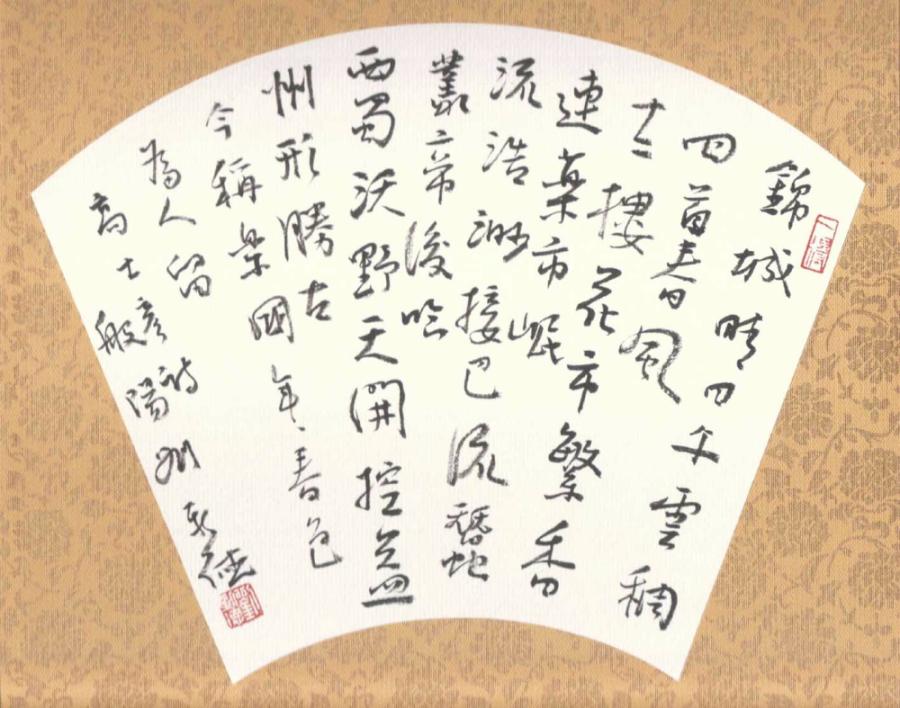 錦城晴日午雲稠
回首春風
十二樓花市繁香
連藥市岷
流浩渺接巴流蠶
叢帝後
西蜀沃野天開控益
州形勝古
今稱樂國年年春色
為人留
高士彥詩
般陽